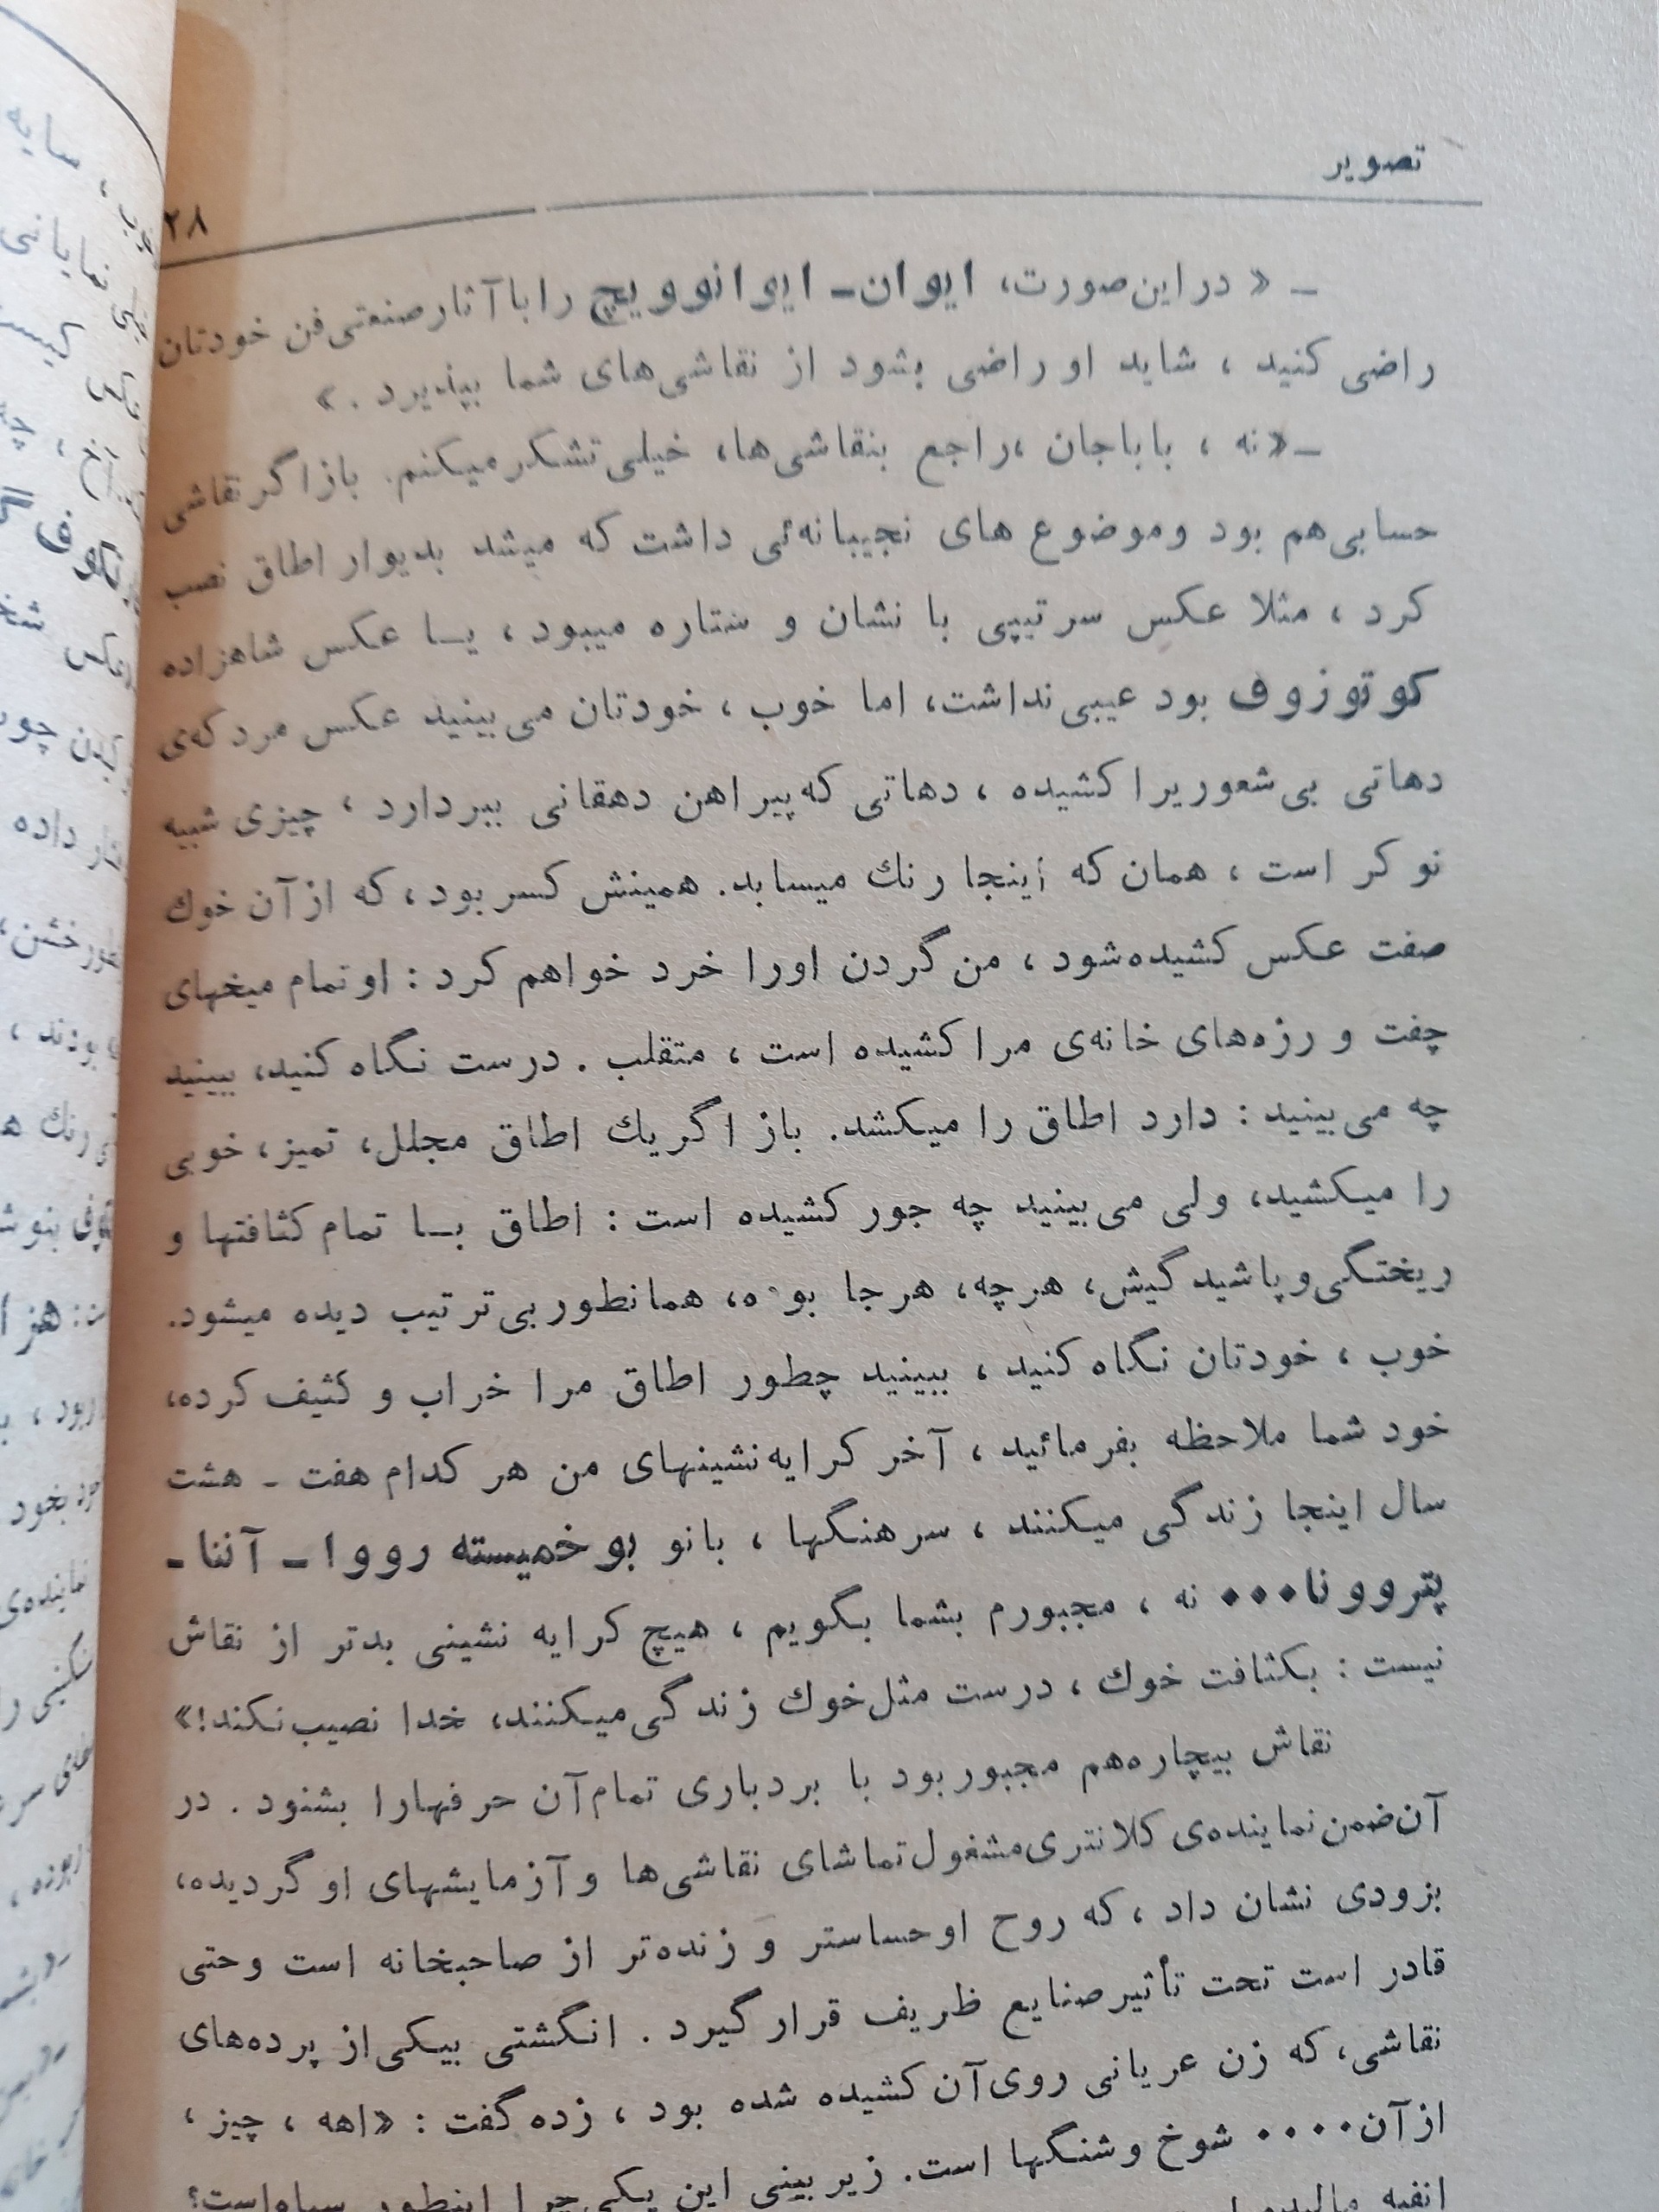 تصویر
۲۸
ـ « در این‌صورت، ایوان ـ ایوانوویچ را با آثار صنعتی فن خودتان
راضی کنید ، شاید او راضی بشود از نقاشی‌های شما بپذیرد . »
ـ «نه ، باباجان ،راجع بنقاشی‌ها، خیلی تشکر میکنم. باز اگر نقاشی
حسابی هم بود و موضوع های نجیبانه‌ئی داشت که میشد بدیوار اطاق نصب
کرد ، مثلا عکس سرتیپی با نشان و ستاره میبود ، یا عکس شاهزاده
کوتوزوف بود عیبی نداشت، اما خوب ، خودتان می‌بینید عکس مردکه‌ی
دهاتی بی‌شعوریرا کشیده ، دهاتی که پیراهن دهقانی ببر دارد ، چیزی شبیه
نوکر است ، همان که اینجا رنك میسابد. همینش کسر بود ، که از آن خوك
صفت عکس کشیده شود ، من گردن اورا خرد خواهم کرد : او تمام میخهای
چفت و رزه‌های خانه‌ی مرا کشیده است ، متقلب . درست نگاه کنید، ببینید
چه می‌بینید : دارد اطاق را میکشد. باز اگر یك اطاق مجلل، تمیز، خوبی
را میکشید، ولی می‌بینید چه جور کشیده است : اطاق با تمام کثافتها و
ریختگی و پاشیدگیش، هرچه، هرجا بوده، همانطور بی‌ترتیب دیده میشود.
خوب ، خودتان نگاه کنید ، ببینید چطور اطاق مرا خراب و کثیف کرده،
خود شما ملاحظه بفرمائید ، آخر کرایه‌نشینهای من هر کدام هفت ـ هشت
سال اینجا زندگی میکنند ، سرهنگها ، بانو بوخمیسته رووا ـ آننا ـ
پتروونا... نه ، مجبورم بشما بگویم ، هیچ کرایه نشینی بدتر از نقاش
نیست : بکثافت خوك ، درست مثل خوك زندگی میکنند، خدا نصیب نکند!»
نقاش بیچاره‌هم مجبور بود با بردباری تمام آن حرفهارا بشنود . در
آن‌ضمن نماینده‌ی کلانتری مشغول تماشای نقاشی‌ها و آزمایشهای او گردیده،
بزودی نشان داد ، که روح او حساستر و زنده‌تر از صاحبخانه است و حتی
قادر است تحت تأثیر صنایع ظریف قرار گیرد . انگشتی بیکی از پرده‌های
نقاشی، که زن عریانی روی آن کشیده شده بود ، زده گفت : «اهه ، چیز ،
از آن.... شوخ و شنگها است. زیر بینی این یکی چرا اینطور سیاه است؟
انفیه مالیده